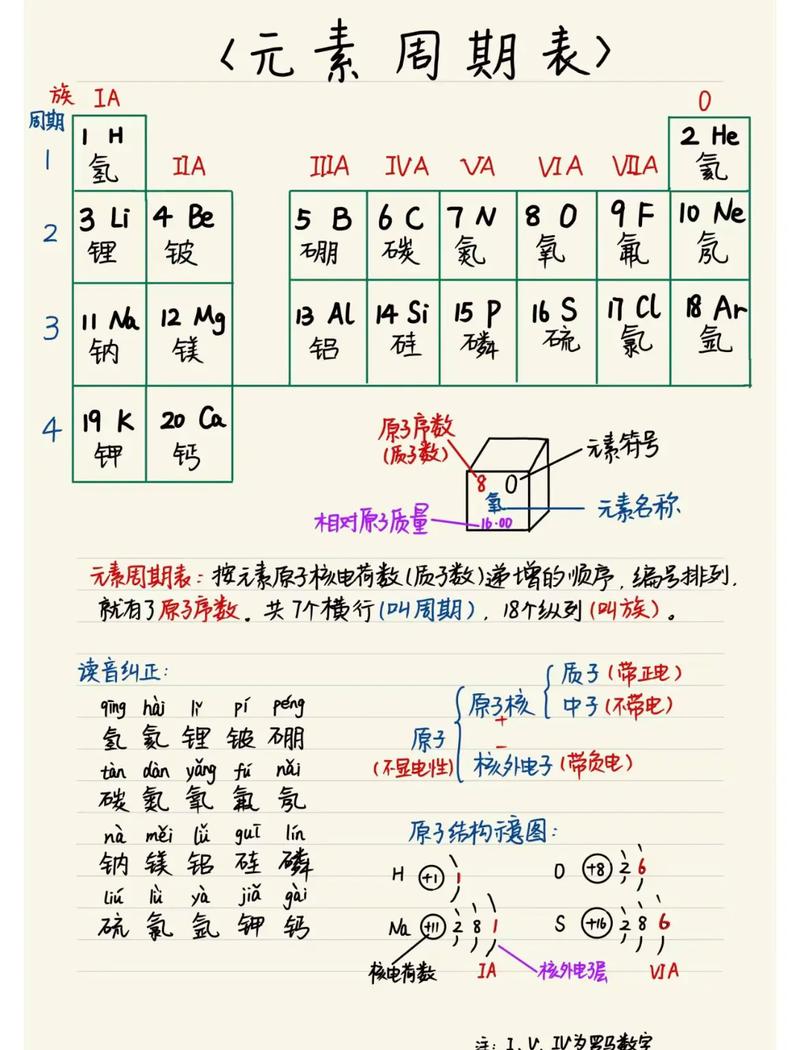 〈元素周期表〉
族 IA 0
周期
1 1 H 氢 IIA IIIA IVA VA VIA VIIA 2 He 氦
2 3 Li 4 Be 5 B 6 C 7 N 8 O 9 F 10 Ne
锂 铍 硼 碳 氮 氧 氟 氖
3 11 Na 12 Mg 13 Al 14 Si 15 P 16 S 17 Cl 18 Ar
钠 镁 铝 硅 磷 硫 氯 氩
4 19 K 20 Ca
钾 钙
原子序数
(质子数)
元素符号
8 O
氧
元素名称
相对原子质量
16.00
元素周期表：按元素原子核电荷数(质子数)递增的顺序，编号排列，
就有了原子序数。共7个横行(叫周期)，18个纵列(叫族)。
读音纠正：
qīng hài lǐ pí péng
氢 氦 锂 铍 硼
tàn dàn yǎng fú nǎi
碳 氮 氧 氟 氖
nà měi lǚ guī lín
钠 镁 铝 硅 磷
liú lǜ yà jiǎ gài
硫 氯 氩 钾 钙
质子(带正电)
原子核
中子(不带电)
+
原子
(不显电性)
-
核外电子(带负电)
原子结构示意图：
H +1 1 O +8 2 6
Na +11 2 8 1 S +16 2 8 6
核电荷数 IA 核外电子层 VIA
注：I、V、IV为罗马数字